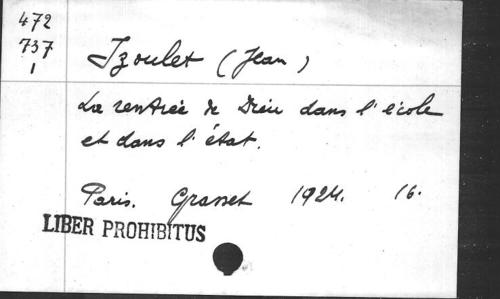 472
737
1
Izoulet (Jean)
La rentrée de Dieu dans l'école
et dans l'état.
Paris. Grasset 1924. 16.
LIBER PROHIBITUS